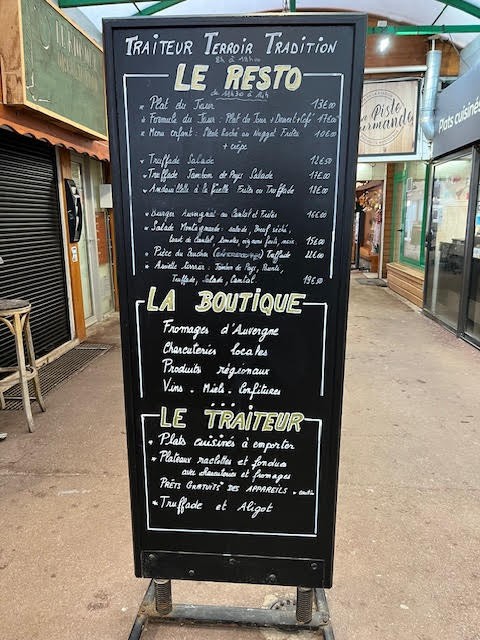 TRAITEUR TERROIR TRADITION
LE RESTO
de 11H30 à 14H
* Plat du Jour 13€00
* Formule du Jour : Plat du Jour + Dessert + Café 17€00
* Menu enfant : Steak haché ou Nugget Frites 10€00
+ crêpe
* Truffade Salade 12€50
* Truffade Jambon de Pays Salade
* Andouillette à la ficelle Frites ou Truffade
* Burger Auvergnat au Cantal et Frites 16€00
* Salade Montagnarde : salade, Bœuf séché,
Cantal, tomates, oignons frits, noix. 15€00
* Pièce du Boucher Truffade 22€00
* Assiette terroir : Jambon de Pays,
Truffade, Salade, Cantal. 19€50
LA BOUTIQUE
Fromages d'Auvergne
Charcuteries locales
Produits régionaux
Vins . Miels . Confitures
...
LE TRAITEUR
* Plats cuisinés à emporter
* Plateaux raclettes et fondues
avec charcuteries et fromages
PRÊTS GRATUITS DES APPAREILS
* Truffade et Aligot
Piste
Gourmande
Plats cuisinés